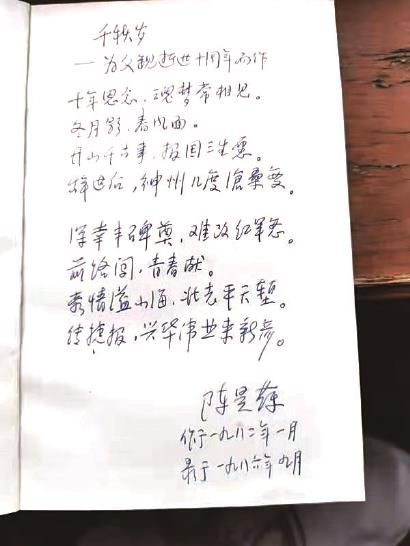 千秋岁
—为父亲逝世十周年而作
十年思念,魂梦常相见。
冬月影,春风面。
开山千古事,报国三生愿。
后,神州几度沧桑变。
深幸丰碑奠,难改红军念。
前路闯,青春献。
豪情溢山海,壮志平天堑。
传捷报,兴华伟业来新彦。
陈昊苏
作于一九八二年一月
录于一九八六年九月